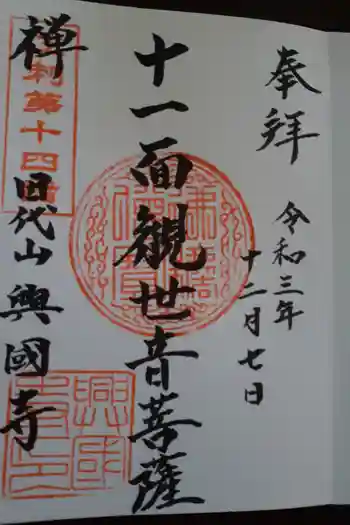 奉拝
令和三年
十二月七日
十一面観世音菩薩
禅刹第十四番
田代山興國寺
興國寺印